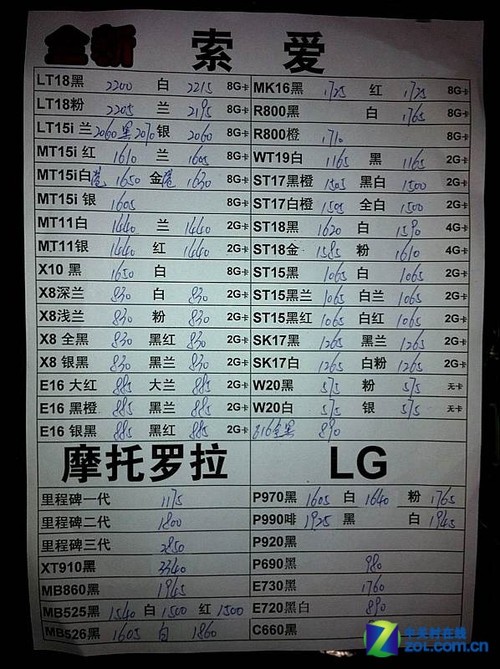 全新 索 爱
LT18黑 2200 白 2215 8G卡
LT18粉 2205 兰 2195 8G卡
LT15i 兰 2060 黑 2070 银 2060 8G卡
MT15i 红 1610 兰 1605 8G卡
MT15i白 1650 金 1630 8G卡
MT15i 银 1605 8G卡
MT11白 1440 兰 1440 2G卡
MT11银 1440 红 1440 2G卡
X10 黑 1650 白 8G卡
X8深兰 830 白 830 2G卡
X8浅兰 830 粉 830 2G卡
X8 全黑 830 黑红 830 2G卡
X8 银黑 830 黑兰 830 2G卡
E16 大红 885 大兰 885 2G卡
E16 黑橙 885 黑兰 885 2G卡
E16 银黑 885 黑红 885 2G卡
MK16黑 1725 红 1725 8G卡
R800黑 白 1765 8G卡
R800橙 1710 8G卡
WT19白 1165 黑 1165 2G卡
ST17黑橙 1505 黑白 1500 2G卡
ST17白橙 1505 全白 1500 2G卡
ST18黑 1620 白 1590 4G卡
ST18金 1585 粉 1610 4G卡
ST15黑 1065 白 1065 2G卡
ST15黑兰 1065 白兰 1065 2G卡
ST15黑红 1065 白红 1065 2G卡
SK17黑 1265 黑兰 1265 2G卡
SK17白 1265 白粉 1265 2G卡
W20黑 575 粉 575 无卡
W20白 575 银 575 无卡
890
摩托罗拉
里程碑一代 1175
里程碑二代 1800
里程碑三代 2850
XT910黑 3340
MB860黑 1945
MB525黑 1540 白 1500 红 1500
MB526黑 1605 白 1860
LG
P970黑 1605 白 1640 粉 1765
P990啡 1925 黑 白 1945
P920黑
P690黑 980
E730黑 1760
E720黑白 890
C660黑
Z 中关村在线
zol.com.cn